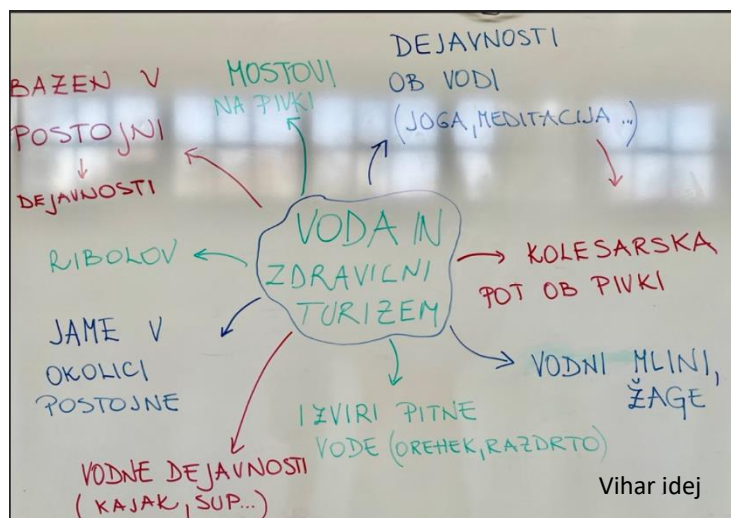 BAZEN V
POSTOJNI
↓
DEJAVNOSTI
MOSTOVI
NA PIVKI
DEJAVNOSTI
OB VODI
(JOGA, MEDITACIJA ...)
VODA IN
ZDRAVILNI
TURIZEM
RIBOLOV
KOLESARSKA
POT OB PIVKI
JAME V
OKOLICI
POSTOJNE
VODNI MLINI,
ŽAGE
IZVIRI PITNE
VODE (OREHEK, RAZDRTO)
VODNE DEJAVNOSTI
(KAJAK, SUP...)
Vihar idej